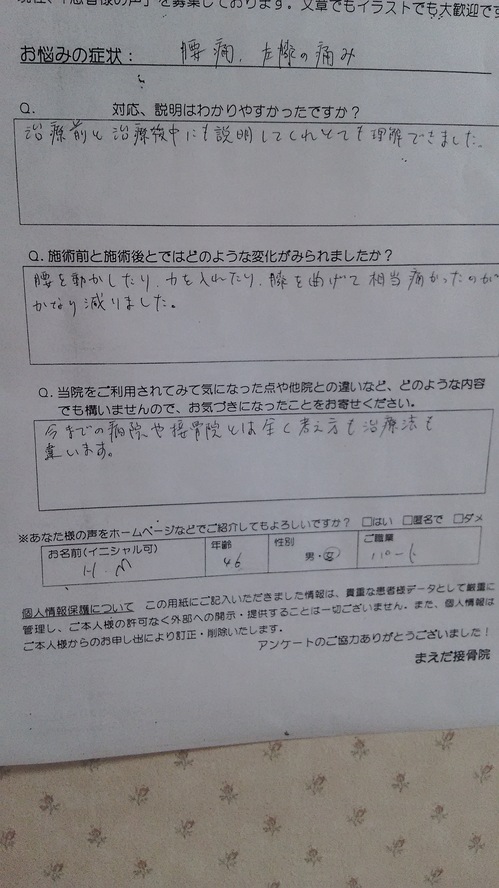 「患者様の声」を募集しております。文章でもイラストでも大歓迎です
お悩みの症状： 腰痛、左膝の痛み
Q. 対応、説明はわかりやすかったですか？
治療前も治療後中にも説明してくれとても理解できました。
Q. 施術前と施術後とではどのような変化がみられましたか？
腰を動かしたり、力を入れたり、膝を曲げて相当痛かったのが
かなり減りました。
Q. 当院をご利用されてみて気になった点や他院との違いなど、どのような内容
でも構いませんので、お気づきになったことをお寄せください。
今までの病院や接骨院とは全く考え方も治療法も
違います。
※あなた様の声をホームページなどでご紹介してもよろしいですか？ □はい □匿名で □ダメ
お名前(イニシャル可) 年齢 性別 ご職業
H.M 46 男・女 パート
個人情報保護について この用紙にご記入いただきました情報は、貴重な患者様データとして厳重に
管理し、ご本人様の許可なく外部への開示・提供することは一切ございません。また、個人情報は
ご本人様からのお申し出により訂正・削除いたします。
アンケートのご協力ありがとうございました！
まえだ接骨院